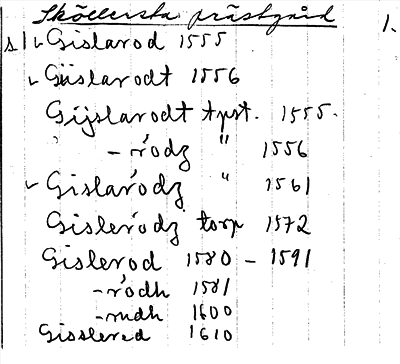 Sköllersta prästgård 1.
s | ✓ Gislarod 1555
✓ Giislarodt 1556
Gijslarodt tpst. 1555.
- rodz " 1556
✓ Gislarodz " 1561
Gislerodz torp 1572
Gislerod 1580 - 1591
- rodh 1581
- rudh 1600
Gisslered 1610